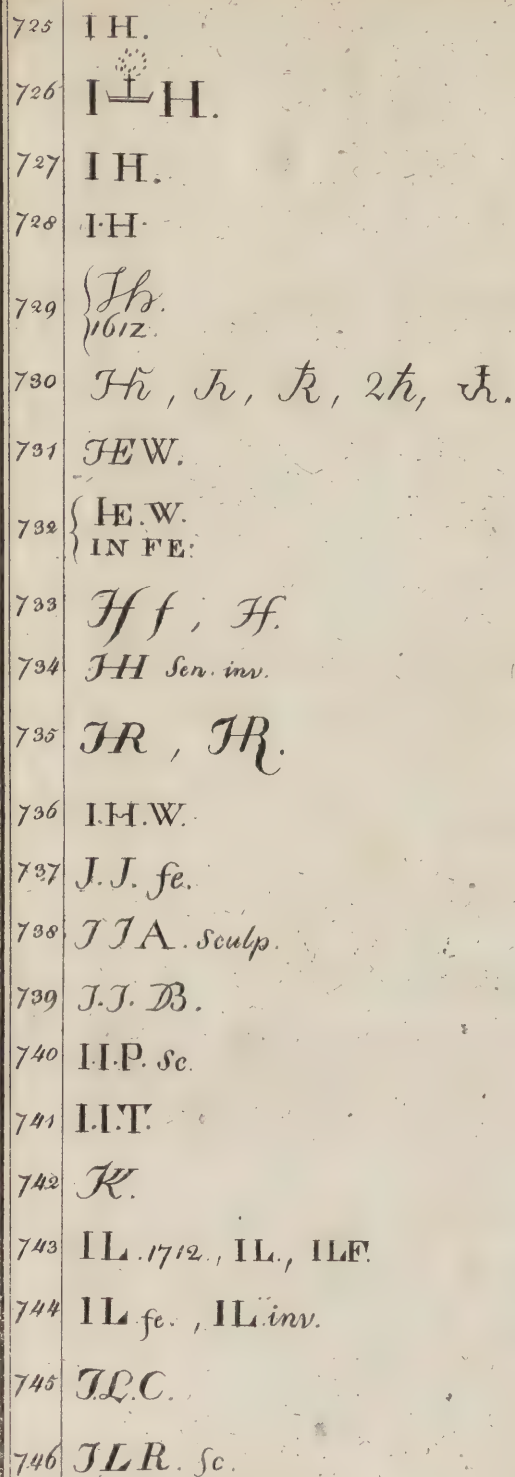 725 I H.
726 I H.
727 I H.
728 I·H·
729 Jh.
1612.
730 Jh, Jh, Jh, 2h, Jh.
731 JEW.
732 IE.W.
IN FE:
733 Hf f, Hf.
734 JH Sen. inv.
735 JR, JR.
736 I.H.W.
737 J.J. fe.
738 J J A. Sculp.
739 J.J. B.
740 I.I.P. Sc.
741 I.I.T.
742 JK.
743 I L. 1712., I L., I L F.
744 I L fe., I L inv.
745 J.L.C.
746 J L R. Sc.